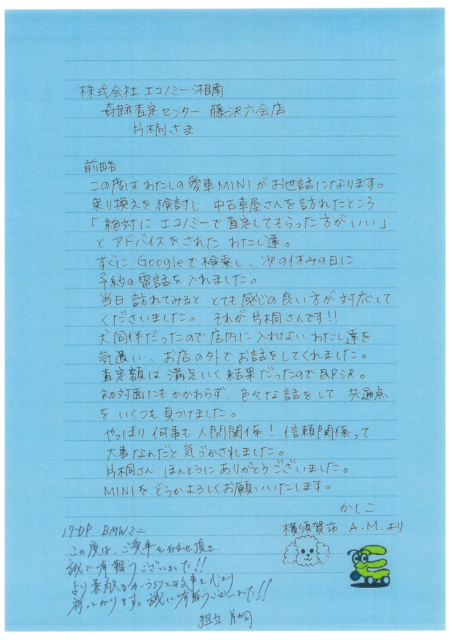 株式会社 エコノミー湘南
奇跡査定センター 藤沢六会店
片桐さま
前略
この度は わたしの愛車MINIがお世話になります。
乗り換えを検討し 中古車屋さんを訪れたところ
「絶対に エコノミーで査定してもらった方がいい」
と アドバイスをされた わたし達。
すぐに Googleで検索し、次の休みの日に
予約の電話を入れました。
当日 訪れてみると とても感じの良い方が対応して
くださいました。 それが片桐さんです!!
犬同伴だったので店内に入れないわたし達を
気遣い、お店の外でお話をしてくれました。
査定額は 満足いく結果だったので即決。
初対面にもかかわらず、色々な話をして 共通点
を いくつも見つけました。
やっぱり 何事も 人間関係! 信頼関係って
大事なんだと気づかされました。
片桐さん ほんとうにありがとうございました。
MINIを どうかよろしくお願いいたします。
かしこ
横須賀市 A.M.より
BMWミニ
この度は、ご愛車をお任せ頂き
誠に有難うございました!!
誠に有難うございました!!
担当 片桐